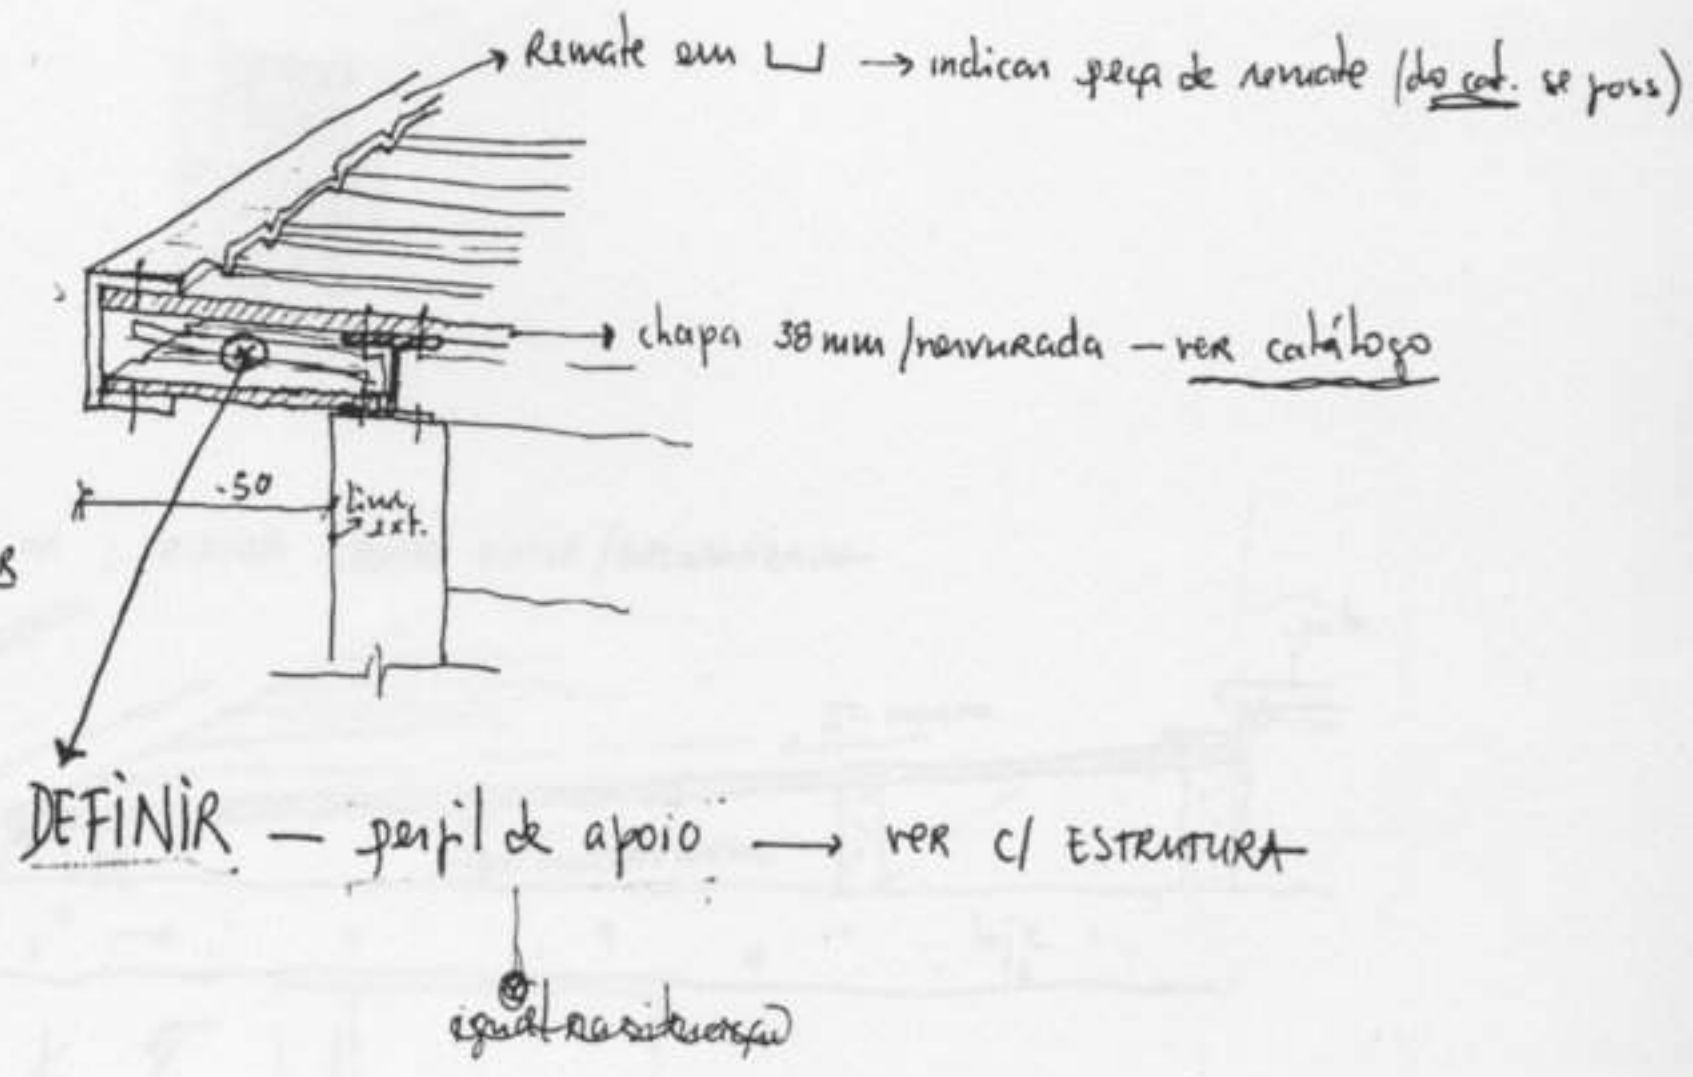 Remate em → indicar peça de remate (do cat. se poss)
chapa 38mm/nervurada — ver catálogo
.50
Lim.
ext.
DEFINIR — perfil de apoio → ver c/ ESTRUTURA
igual